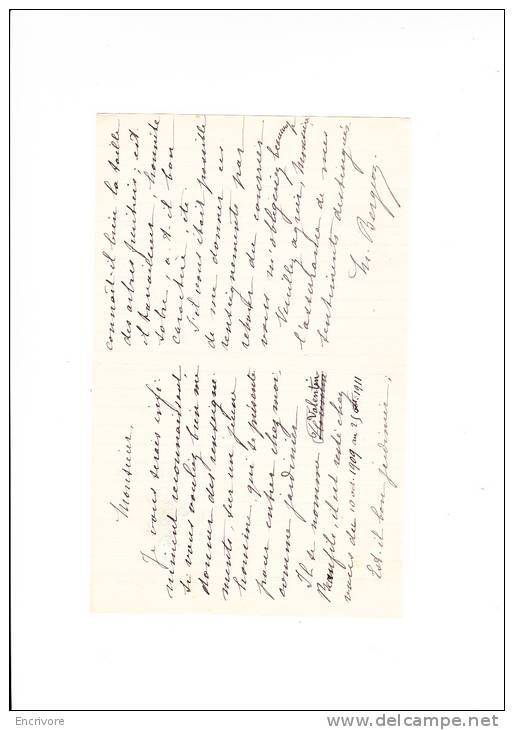 Monsieur,
Je vous serais infi-
niment reconnaissant
si vous vouliez bien me
donner des renseigne-
ments, sur un jeune
homme qui se présente
pour entrer chez moi,
comme jardinier
Il se nomme Valentin
il est resté chez
vous du 10 1909 au 25 1911
Est-il bon jardinier,
connait-il bien la taille
des arbres fruitiers; est
il travailleur, honnête
sobre, a-t-il bon
caractère, etc.
S'il vous était possible
de me donner ces
renseignements par
retour du courrier
vous m'obligeriez beaucoup
Veuillez agréer, Monsieur
l'assurance de mes
sentiments distingués
Encrivore
www.delcampe.net